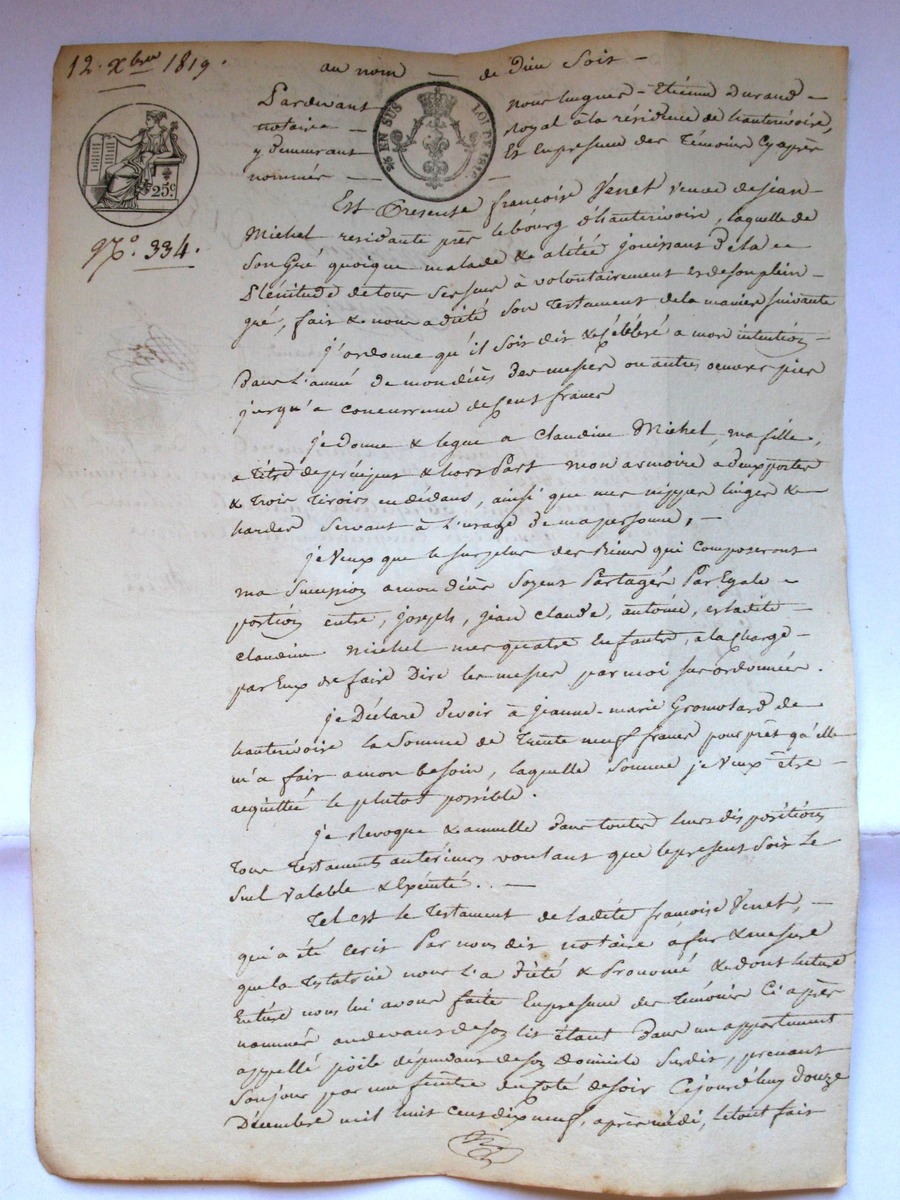 12. Xbre 1819.
au nom — de dieu Soit —
Pardevant nous hugues-Etiénne Durand —
notaire — Royal à la résidence de hauterivoire,
y demeurant Et En presence des Témoins Cy après
nommés — —
EN SUS
LOI DE 1816
25c.
No. 334.
Est Présente françoise Venet veuve de jean
Michel residante près le bourg d'hauterivoire, laquelle de
Son Gré quoique malade & alitée jouissant de la —
Plénitude de tous Ses Sens à volontairement et de son plein —
gré, fait & nous a dicté Son Testament de la maniere suivante
j'ordonne qu'il Soit dit & Célébré a mon intention —
Dans L'année de mon décès des messes ou autres oeuvres pies
jusqu'a concurrence de Cent francs
je Donne & legue a Claudine Michel, ma fille,
a titre de préciput & hors Part mon armoire a deux portes
& trois Tiroirs en dédans, ainsi que mes nippes linges &
hardes Servant à L'usage de ma personne, —
je Veux que le Surplus des Biens qui Composeront
ma Succession a mon décès Soyent Partagés Par Egale —
portion entre, joseph, jean Claude, antoine, et ladite —
Claudine Michel mes quatre Enfants, a la Charge —
par Eux de faire Dire les messes par moi sus ordonnées.
je Déclare devoir à jeanne-marie Gromolard de
hauterivoire la Somme de Trente neuf francs pour prêt qu'elle
m'a fait a mon besoin, laquelle Somme je Veux être —
acquittée le plutot possible.
je Revoque & annulle dans toutes leurs dispositions
Tous Testaments antérieurs voulant que le present Soit Le
Seul Valable & Exécuté. . —
Tel est le Testament de ladite françoise Venet, —
qui a été écrit Par nous dit notaire à fur & mesure
que la Testatrice nous l'a dicté & Prononcé & dont lecture
Entière nous lui avons faite En presence des Témoins Ci après
nommés au devant de son lit étant Dans un appartement
appellé poile dépendant de son Domicile Susdit, prenant
Son jour par une fenêtre du Coté de Soir Cejourd'huy douze
Décembre mil huit cent dix neuf, après midi, le tout fait